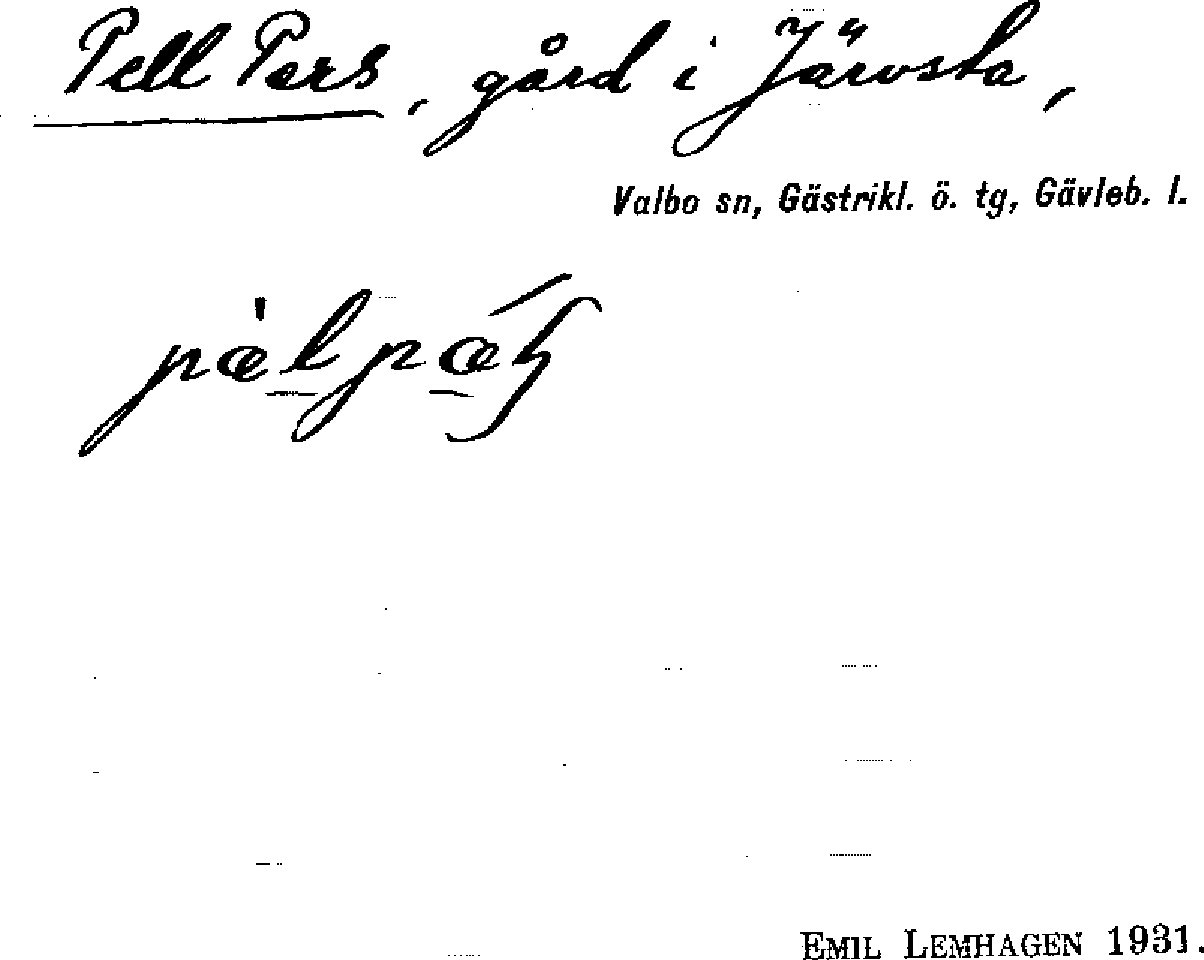 Pell Pers, gård i Järvsta,
Valbo sn, Gästrikl. ö. tg, Gävleb. l.
EMIL LEMHAGEN 1931.